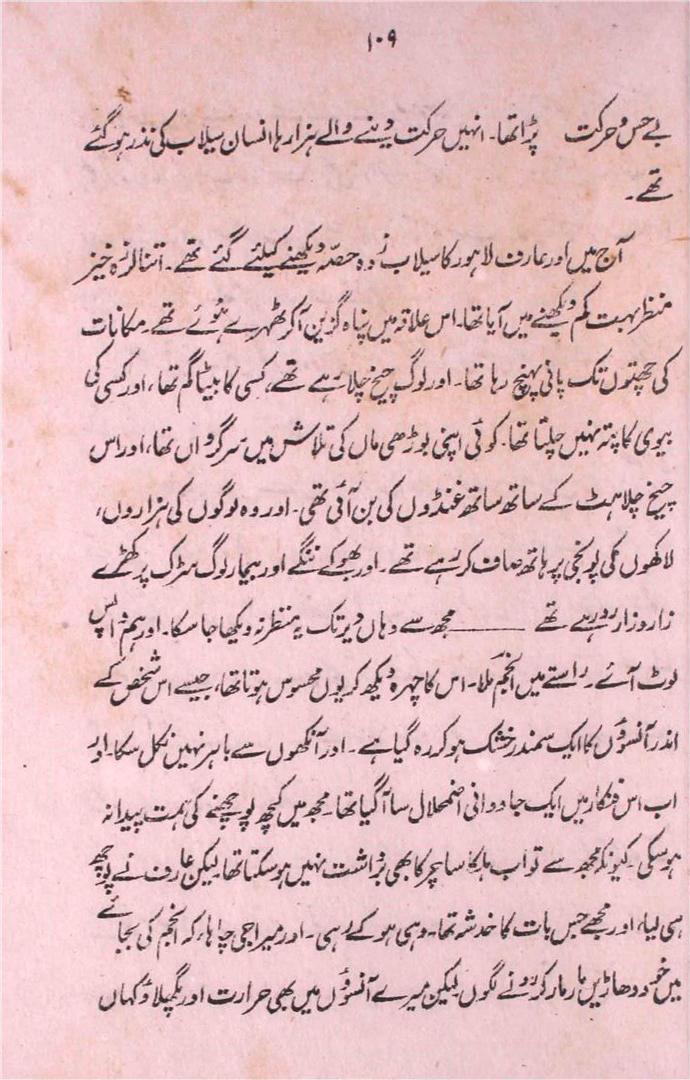 ۱۰۹
بے حس و حرکت پڑا تھا۔ انہیں حرکت دینے والے ہزارہا انسان سیلاب کی نذر ہو گئے
تھے۔
آج میں اور عارف لاہور کا سیلاب زدہ حصّہ دیکھنے کیلئے گئے تھے۔ اتنا لرزہ خیز
منظر بہت کم دیکھنے میں آیا تھا۔ اس علاقہ میں پناہ گزین آ کر ٹھہرے ہوئے تھے۔ مکانات
کی چھتوں تک پانی پہنچ رہا تھا۔ اور لوگ چیخ چلا رہے تھے، کسی کا بیٹا گم تھا، اور کسی کی
بیوی کا پتہ نہیں چلتا تھا۔ کوئی اپنی بوڑھی ماں کی تلاش میں سرگرداں تھا، اور اس
چیخ چلاہٹ کے ساتھ ساتھ غنڈوں کی بن آئی تھی۔ اور وہ لوگوں کی ہزاروں،
لاکھوں کی پونجی پر ہاتھ صاف کر رہے تھے۔ اور بھوکے ننگے اور بیمار لوگ سڑک پر کھڑے
زار و زار رو رہے تھے ——— مجھ سے وہاں دیر تک یہ منظر نہ دیکھا جا سکا۔ اور ہم واپس
لوٹ آئے۔ راستے میں انجم ملا۔ اس کا چہرہ دیکھ کر یوں محسوس ہوتا تھا، جیسے اس شخص کے
اندر آنسوؤں کا ایک سمندر خشک ہو کر رہ گیا ہے۔ اور آنکھوں سے باہر نہیں نکل سکا۔ اور
اب اس فنکار میں ایک جاودانی اضمحلال سا آ گیا تھا۔ مجھ میں کچھ پوچھنے کی ہمت پیدا نہ
ہو سکی۔ کیونکہ مجھ سے تو اب ہلکا سا چرکا بھی برداشت نہیں ہو سکتا تھا لیکن عارف نے پوچھ
ہی لیا، اور مجھے جس بات کا خدشہ تھا۔ وہی ہو کے رہی۔ اور میرا جی چاہا، کہ انجم کی بجائے
میں خود دھاڑیں مار مار کر رونے لگوں لیکن میرے آنسوؤں میں بھی حرارت اور پگھلاؤ کہاں